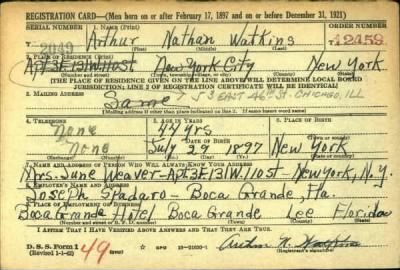 REGISTRATION CARD—(Men born on or after February 17, 1897 and on or before December 31, 1921)
SERIAL NUMBER 1. NAME (Print) ORDER NUMBER
2049 Arthur Nathan Watkins 12459
(First) (Middle) (Last)
2. PLACE OF RESIDENCE (Print)
Apt 3E 131W. 110st New York City New York
(Number and street) (Town, township, village, or city) (County) (State)
[THE PLACE OF RESIDENCE GIVEN ON THE LINE ABOVE WILL DETERMINE LOCAL BOARD
JURISDICTION; LINE 2 OF REGISTRATION CERTIFICATE WILL BE IDENTICAL]
3. MAILING ADDRESS
Same EAST 46th St. CHICAGO, ILL
[Mailing address if other than place indicated on line 2. If same insert word same]
4. TELEPHONE 5. AGE IN YEARS 6. PLACE OF BIRTH
None 44 yrs
DATE OF BIRTH (Town or county)
None July 29 1897 New York
(Mo.) (Day) (Yr.) (State or country)
7. NAME AND ADDRESS OF PERSON WHO WILL ALWAYS KNOW YOUR ADDRESS
Mrs. June Weaver-Apt 3E 131W. 110st-New York, N.Y.
8. EMPLOYER'S NAME AND ADDRESS
Joseph Spadaro - Boca Grande, Fla.
9. PLACE OF EMPLOYMENT OR BUSINESS
Boca Grande Hotel Boca Grande Lee Florida
(Number and street or R. F. D. number) (Town) (County) (State)
I AFFIRM THAT I HAVE VERIFIED ABOVE ANSWERS AND THAT THEY ARE TRUE.
D. S. S. Form 1
(Revised 1-1-42) 49 GPO 16—21630-1 Arthur N. Watkins